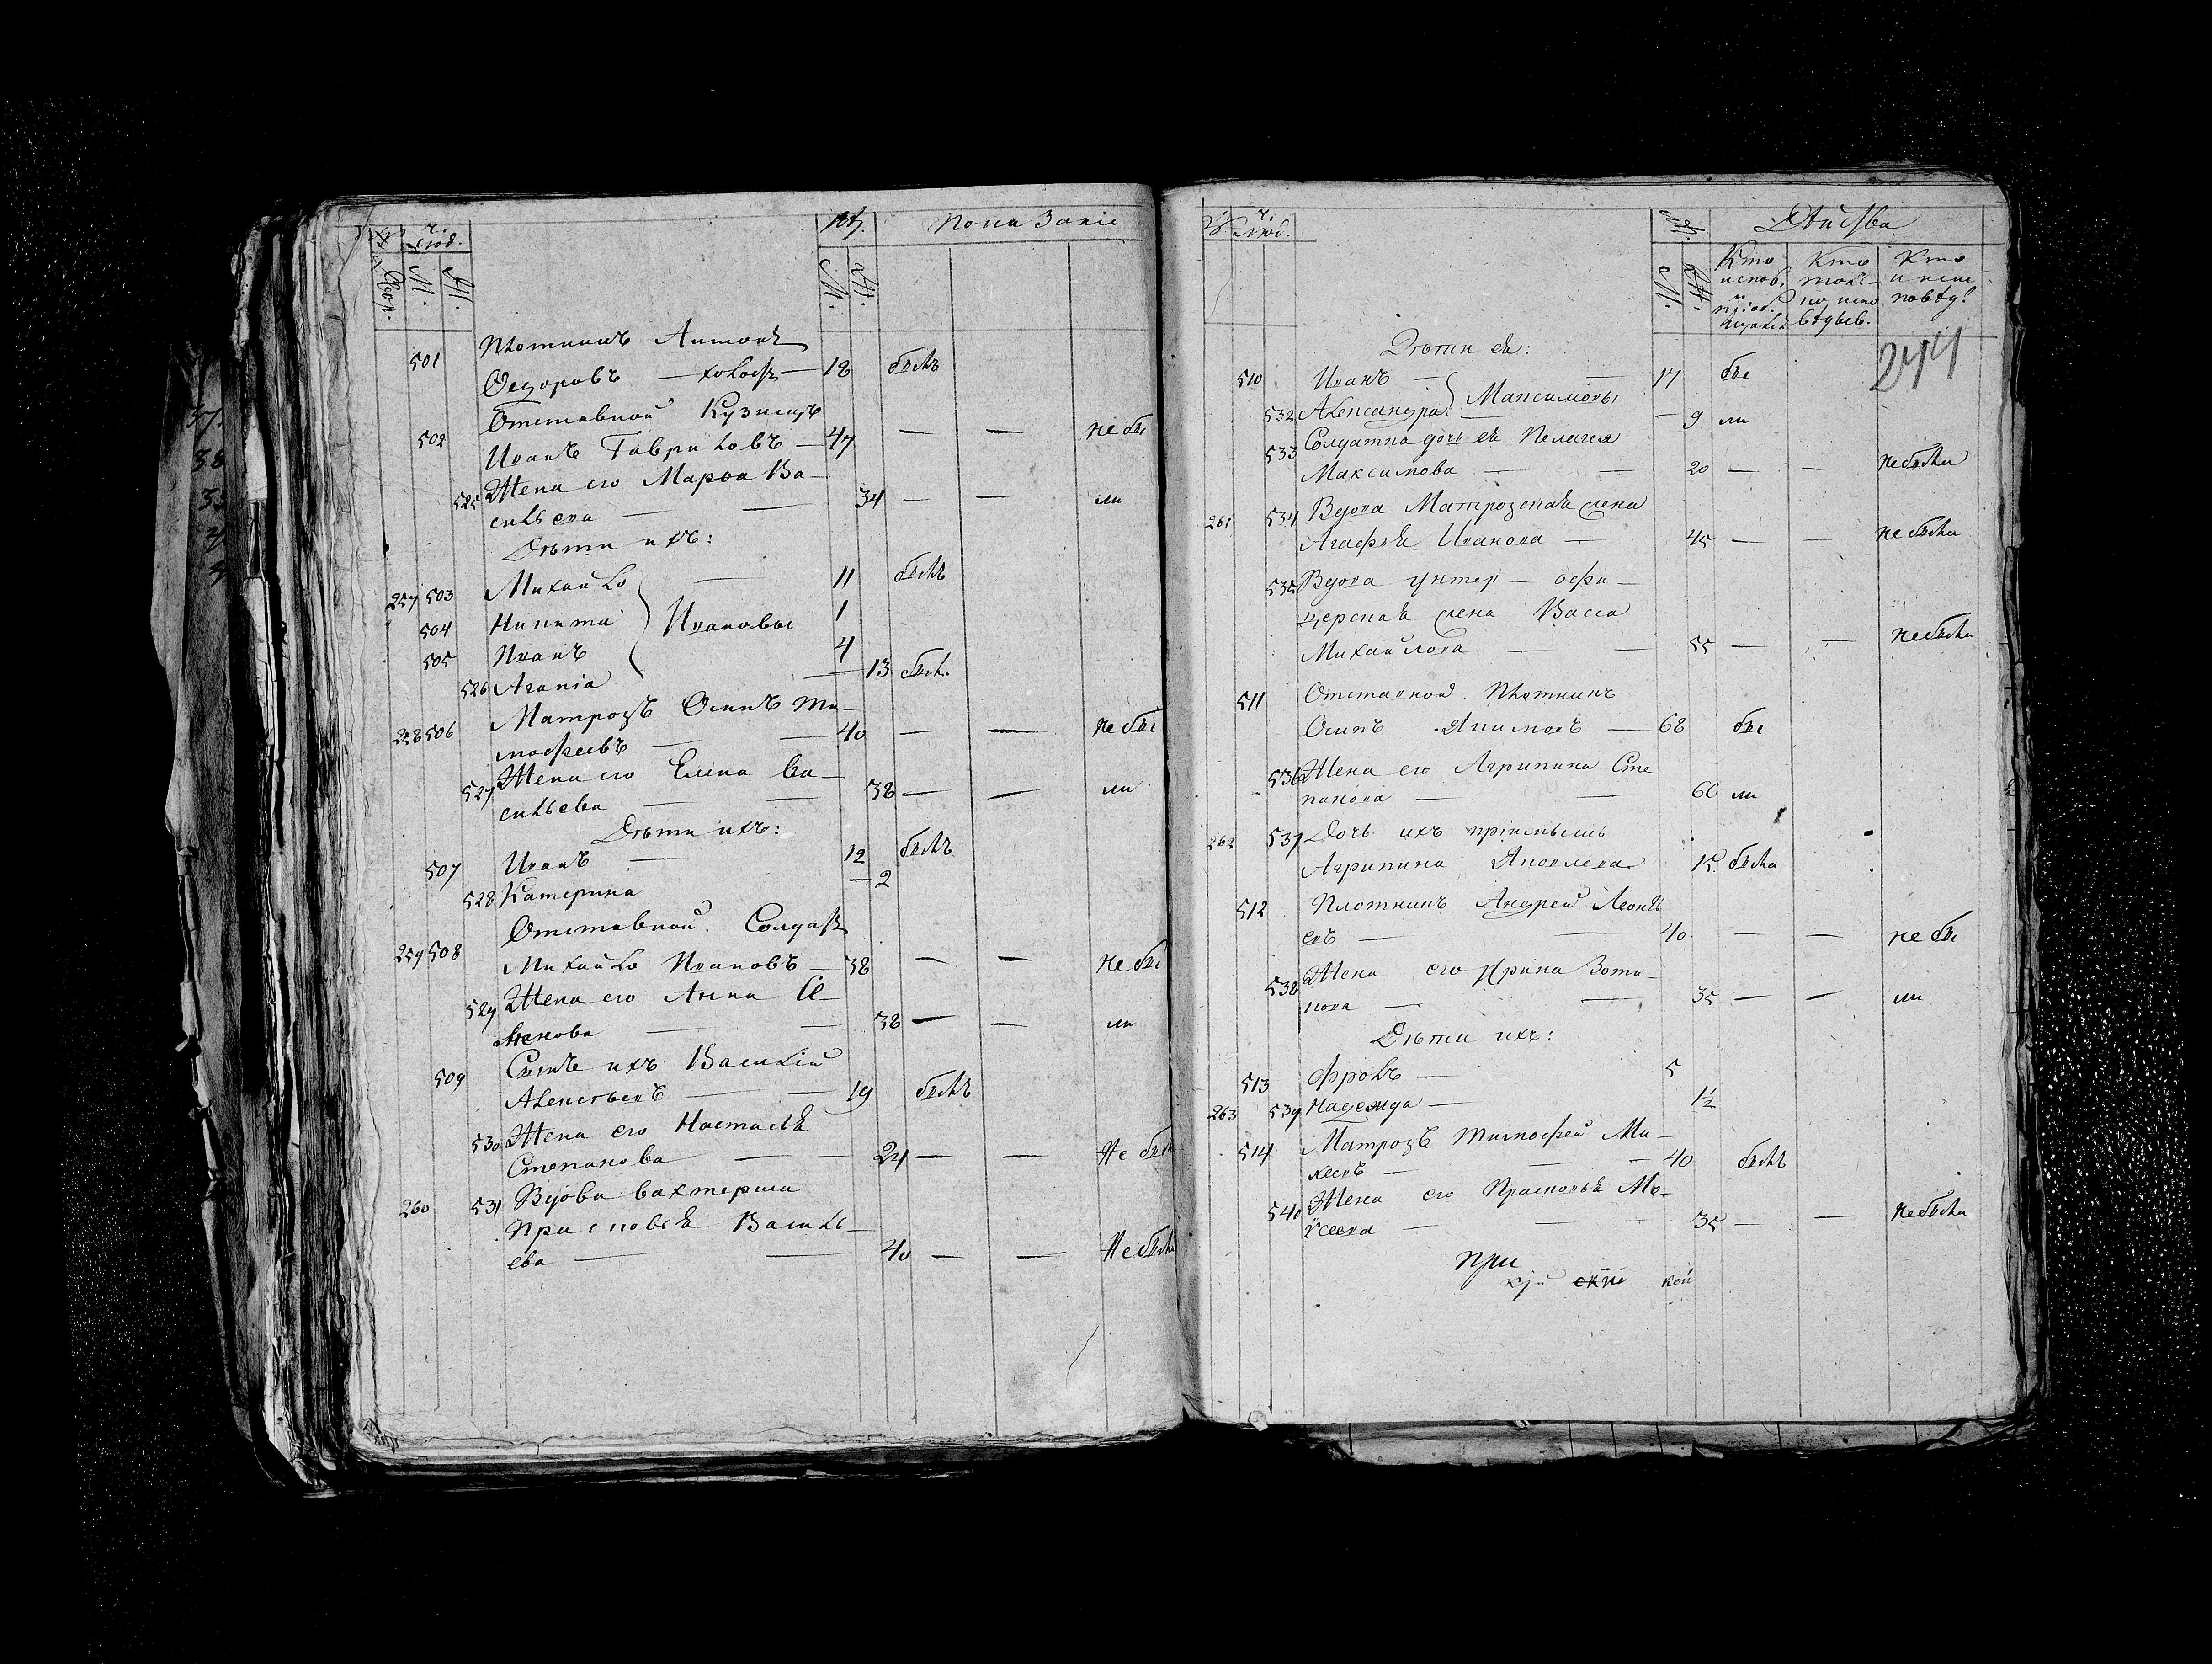 ч.
люд.
лѣ.
Показаніе
М.
Ж.
М.
Ж.
Плотникъ Антонъ
501 Ѳедоровъ — холостъ — 18 былъ
Отставной Кузнецъ
502 Иванъ Гавриловъ — 47 — — не бы
Жена его Марѳа Ва-
525 сильева — — 34 — — ли
Дѣти ихъ:
257 503 Михайло — 11 былъ
504 Никита Ивановы 1
505 Иванъ 4
526 Агапія — 13 был.
Матрозъ Осипъ Ти-
258 506 мофеевъ — — 40 — — не бы
Жена его Елена Ва-
527 сильева — — 38 — — ли
Дѣти ихъ:
507 Иванъ — 12 былъ
528 Катерина — 2
Отставной Солдатъ
259 508 Михайло Ивановъ — 38 — — не бы
529 Жена его Анна
— — 38 — — ли
509 Сынъ ихъ Василій
Алексѣевъ — — 19 былъ
530 Жена его Настасья
Степанова — — 24 — — Не была
260 531 Вдова вахтерша
Прасковья Василь-
ева — — 40 — — Не была
ч.
люд.
Дѣйства
М.
Ж.
Кто Кто Кто
исповѣд.
244
Дѣти ея:
510 Иванъ — — 17 бы
532 Александра Максимовы — 9 ли
533 Солдатка дочь ея Пелагея
Максимова — — 20 — — не была
261 534 Вдова Матрозская жена
Агафья Иванова — 45 — — не была
535 Вдова унтер - офи-
церская жена Васса
Михайлова — — 55 — — не была
511 Отставной Плотникъ
Осипъ Акимовъ — 68 бы
536 Жена его Агрипина Сте
панова — — 60 ли
262 537 Дочь ихъ пріемышь
Агрипина Яковлева 15 была
512 Плотникъ Андрей Леонтъ
евъ — — 40 — — не бы
538 Жена его Ирина Зоти-
кова — — 35 — — ли
Дѣти ихъ:
513 Фролъ — 5
263 539 Надежда — 1½
514 Матрозъ Тимофей Ми-
хеевъ — — — 40 былъ
540 Жена его Прасковья Мо-
ѵсеева — — — 35 — — не была
При